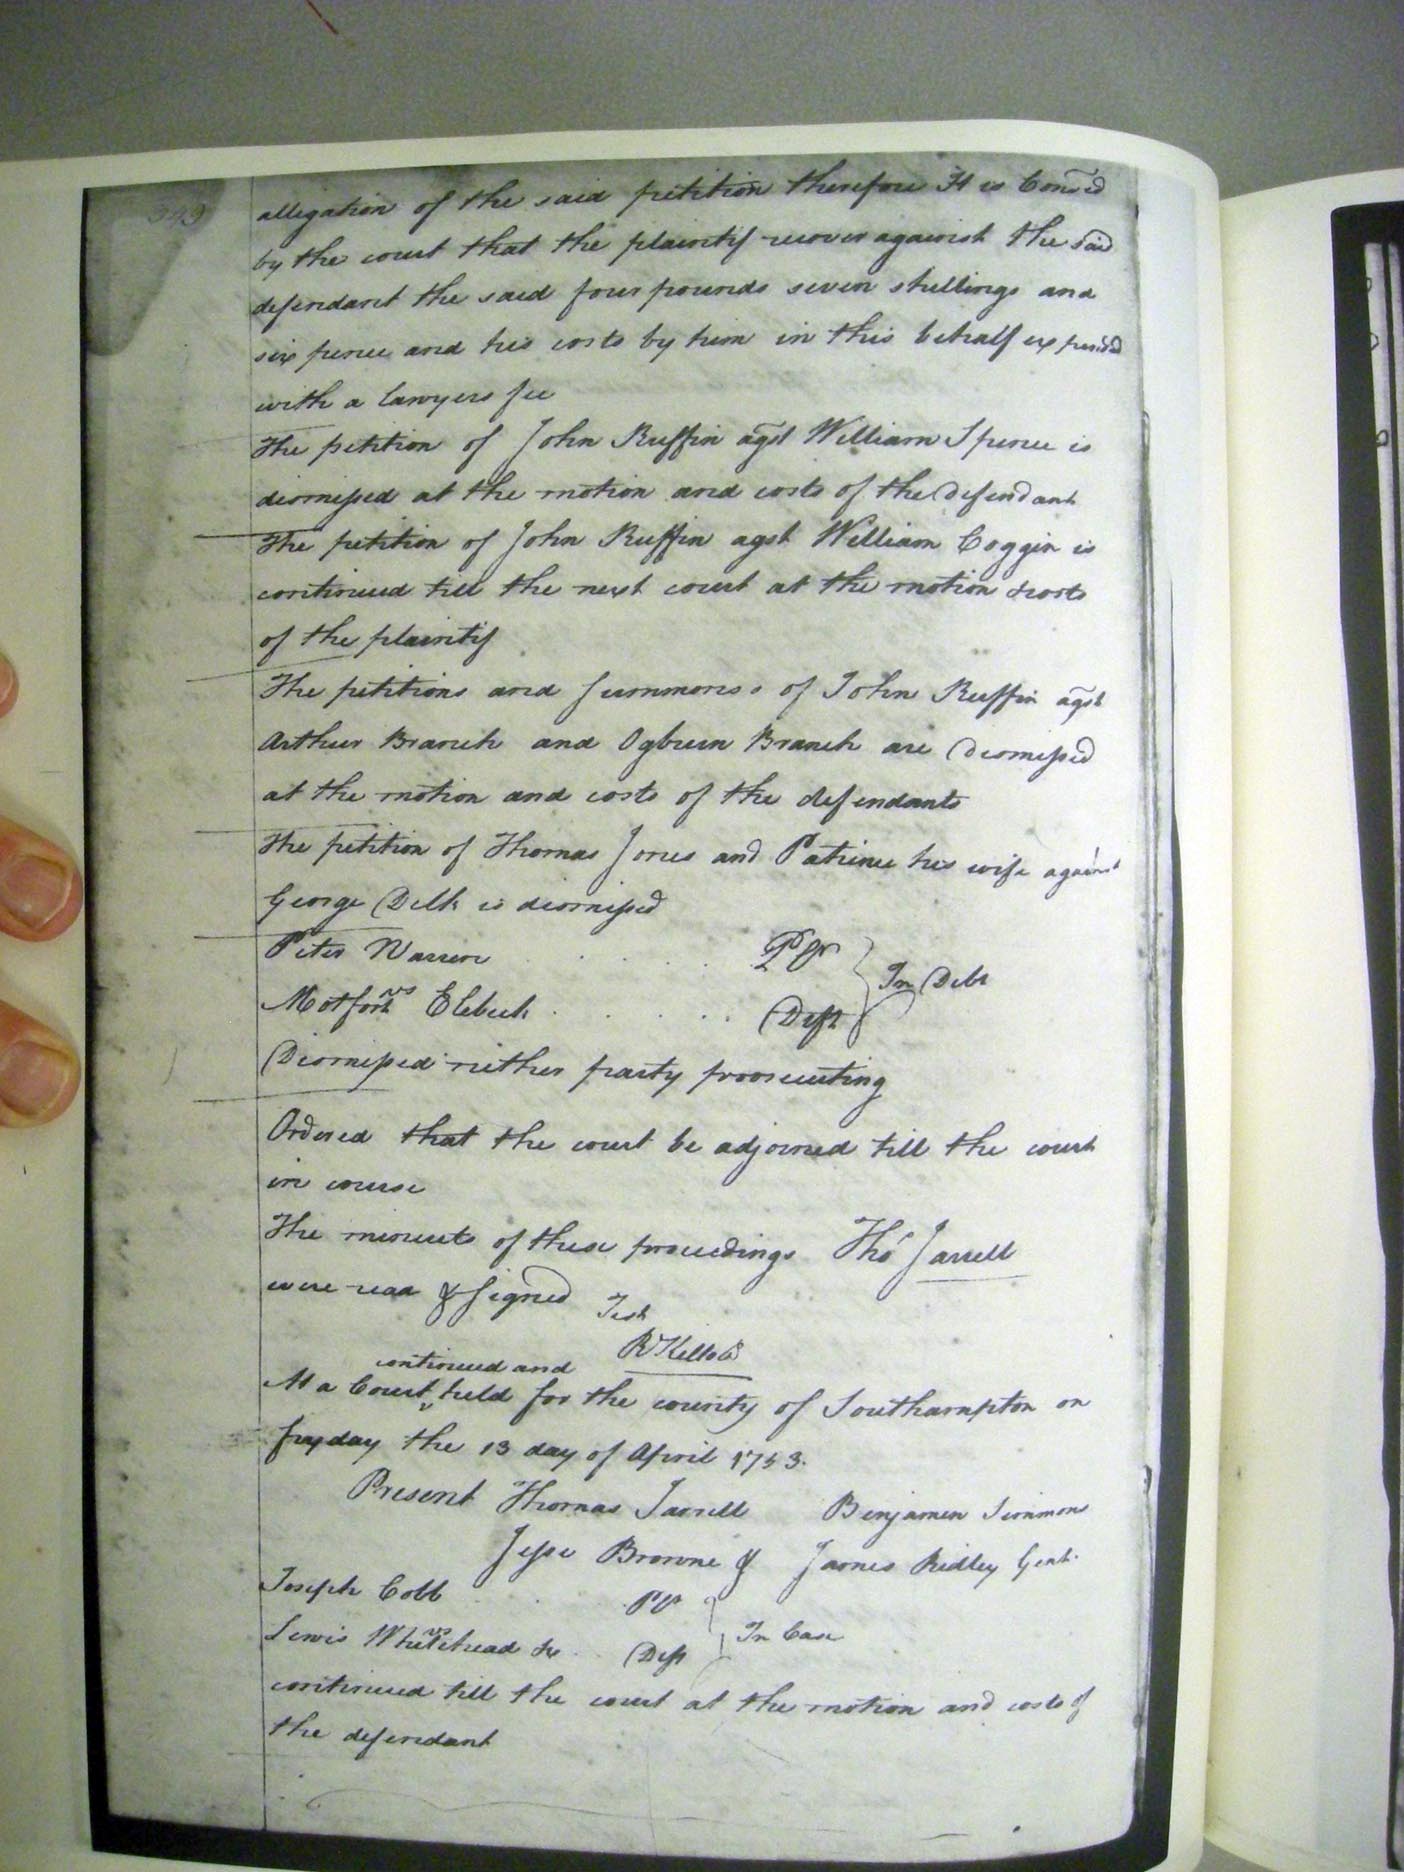 349
allegation of the said petition therefore It is Consd
by the court that the plaintif recover againsh the said
defendant the said four pounds seven shillings and
six pence and his costs by him in this behalf expended
with a lawyers fee
The petition of John Ruffin agst William Spence is
dismissed at the motion and costs of the Defendant
The petition of John Ruffin agst William Coggin is
continued till the next court at the motion & costs
of the plaintif
The petitions and summonses of John Ruffin agst
Arthur Branch and Ogburn Branch are Dismissed
at the motion and costs of the defendants
The petition of Thomas Jones and Patience his wife against
George Delk is dismissed
Peter Warren . . . . . Plt
vs } In Debt
Motforh Elebeck . . . . Deft
Dismissed neither party prosecuting
Ordered that the court be adjorned till the court
in course
The minuets of these proceedings Thos Jarrell
were read & signed
Test
R Kello Cl
continued and
At a Court ‸ held for the county of Southampton on
fryday the 13 day of April 1753.
Present Thomas Jarrell Benjamen Simmons
Jesse Browne & James Ridley Gent.
Joseph Cobb . . . Plt
vs } In Case
Lewis Whitehead . . Deft
continued till the court at the motion and costs of
the defendant